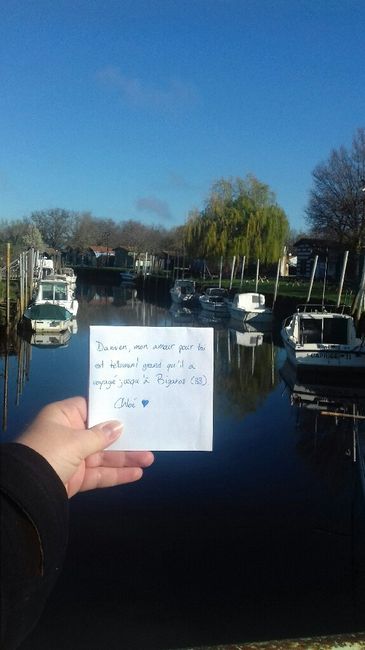 Damien, mon amour pour toi
est tellement grand qu'il a
voyagé jusqu'à Biganos (33)
Chloé ♥